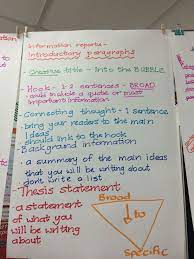 Information reports -
Introductory paragraphs
Creative title - Into the BUBBLE
Hook - 1-3 sentences - BROAD
could include a quote or most
important information
Connecting thought - 1 sentence
- bring your readers to the main
ideas
- should link to the hook
Background information
- a summary of the main ideas
that you will be writing about
- don't write a list
Thesis statement
- a statement
of what you
will be writing
about
Broad
to
Specific